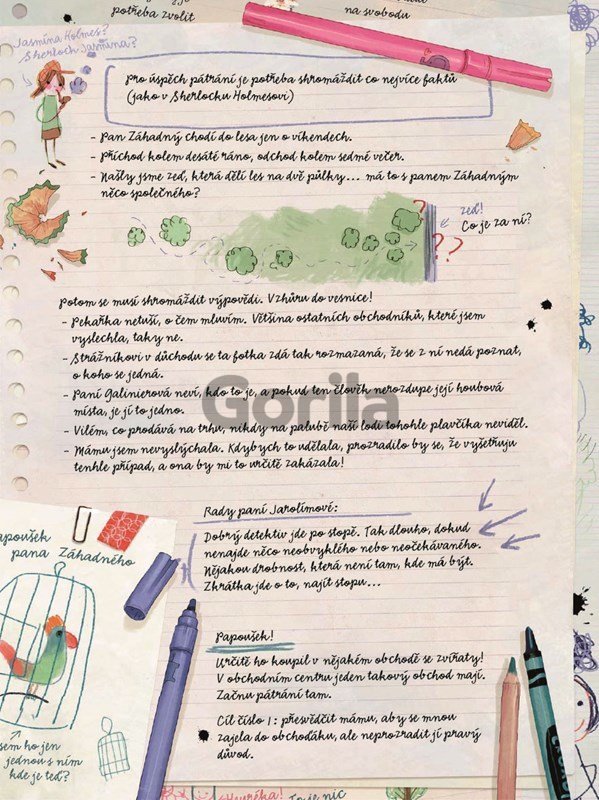 potřeba zvolit
na svobodu
Jasmína Holmes?
Sherlock Jasmína?
Pro úspěch pátrání je potřeba shromáždit co nejvíce faktů
(jako v Sherlocku Holmesovi)
- Pan Záhadný chodí do lesa jen o víkendech.
- Příchod kolem desáté ráno, odchod kolem sedmé večer.
- Našly jsme zeď, která dělí les na dvě půlky... má to s panem Záhadným
něco společného?
?
zeď!
Co je za ní?
? ?
Potom se musí shromáždit výpovědi. Vzhůru do vesnice!
- Pekařka netuší, o čem mluvím. Většina ostatních obchodníků, které jsem
vyslechla, taky ne.
- Strážníkovi v důchodu se ta fotka zdá tak rozmazaná, že se z ní nedá poznat,
o koho se jedná.
- Paní Galinierová neví, kdo to je, a pokud ten člověk nerozdupe její houbová
místa, je jí to jedno.
Gorila
- Vilém, co prodává na trhu, nikdy na palubě naší lodi tohohle plavčíka neviděl.
- Mámu jsem nevyslýchala. Kdybych to udělala, prozradilo by se, že vyšetřuju
tenhle případ, a ona by mi to určitě zakázala!
Rady paní Jarolímové:
Dobrý detektiv jde po stopě. Tak dlouho, dokud
nenajde něco neobvyklého nebo neočekávaného.
Nějakou drobnost, která není tam, kde má být.
Zkrátka jde o to, najít stopu...
apoušek
pana Záhadného
Papoušek!
Určitě ho koupil v nějakém obchodě se zvířaty!
V obchodním centru jeden takový obchod mají.
Začnu pátrání tam.
Cíl číslo 1: přesvědčit mámu, aby se mnou
zajela do obchoďáku, ale neprozradit jí pravý
důvod.
sem ho jen
jednou s ním
kde je teď?
Heuréka!